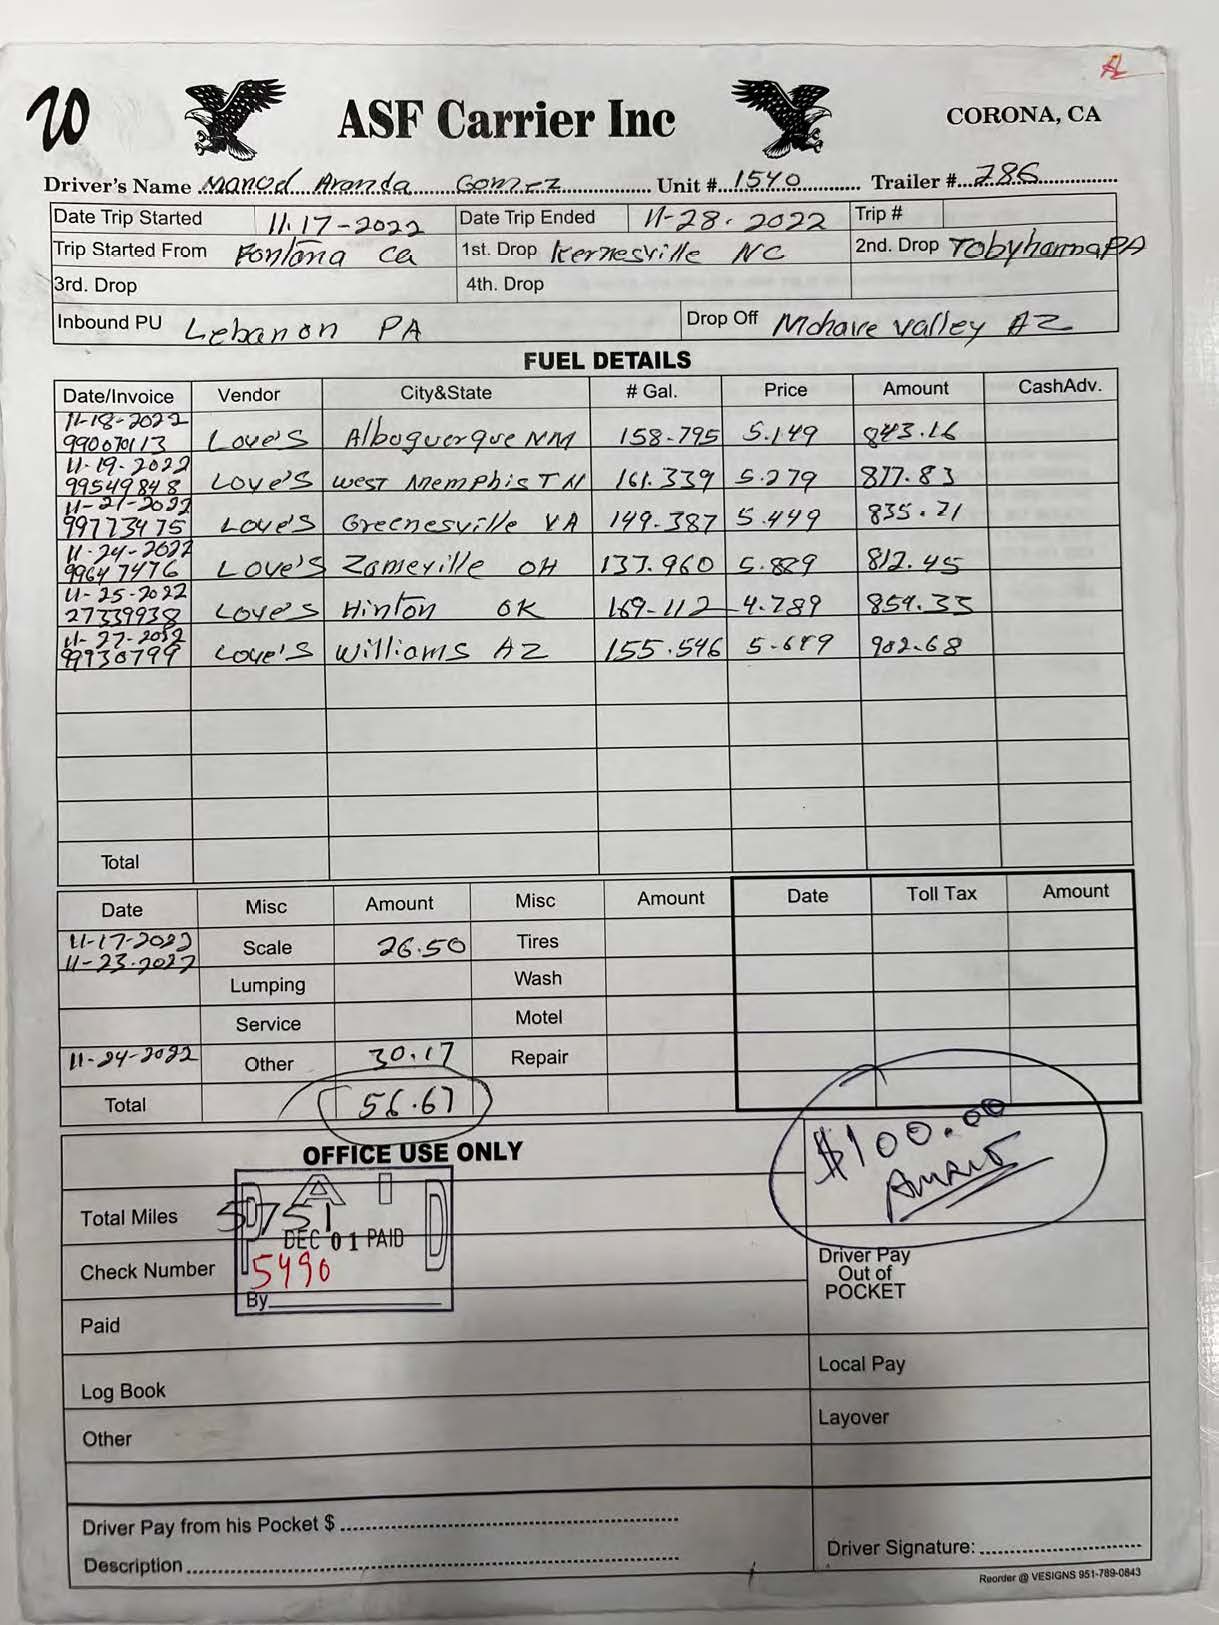 20
ASF Carrier Inc
CORONA, CA
Driver's Name Manod Aranda Gomez Unit # 1540 Trailer # 286
Date Trip Started 11.17-2022 Date Trip Ended 11-28.2022 Trip #
Trip Started From Fontana ca 1st. Drop Kernesville NC 2nd. Drop Tobyhanna PA
3rd. Drop 4th. Drop
Inbound PU Lebanon PA Drop Off Mohave valley AZ
FUEL DETAILS
Date/Invoice Vendor City&State # Gal. Price Amount CashAdv.
11-18-2022
990070113 Love's Albuguerque NM 158-795 5.149 843.16
11-19-2022
99549848 Love's west Memphis TN 161.339 5.279 877.83
11-21-2022
99773475 Love's Greenesville VA 149-387 5.449 835.21
11-24-2022
99647476 Love's Zameville OH 137.960 5.889 812.45
11-25-2022
27339938 Love's Hinton OK 169-112 4.789 854.33
11-27-2022
99930799 Love's Williams AZ 155.546 902.68
Total
Date Misc Amount Misc Amount Date Toll Tax Amount
11-17-2022
11-23-2022 Scale 26.50 Tires
Lumping Wash
Service Motel
11-24-2022 Other 30.17 Repair
Total 56.67
$100.00
OFFICE USE ONLY
PAID
Total Miles 5751
DEC 01 PAID
Check Number 5490
By
Driver Pay
Out of
POCKET
Paid
Local Pay
Log Book
Layover
Other
Driver Pay from his Pocket $
Description
Driver Signature:
Reorder @ VESIGNS 951-789-0843